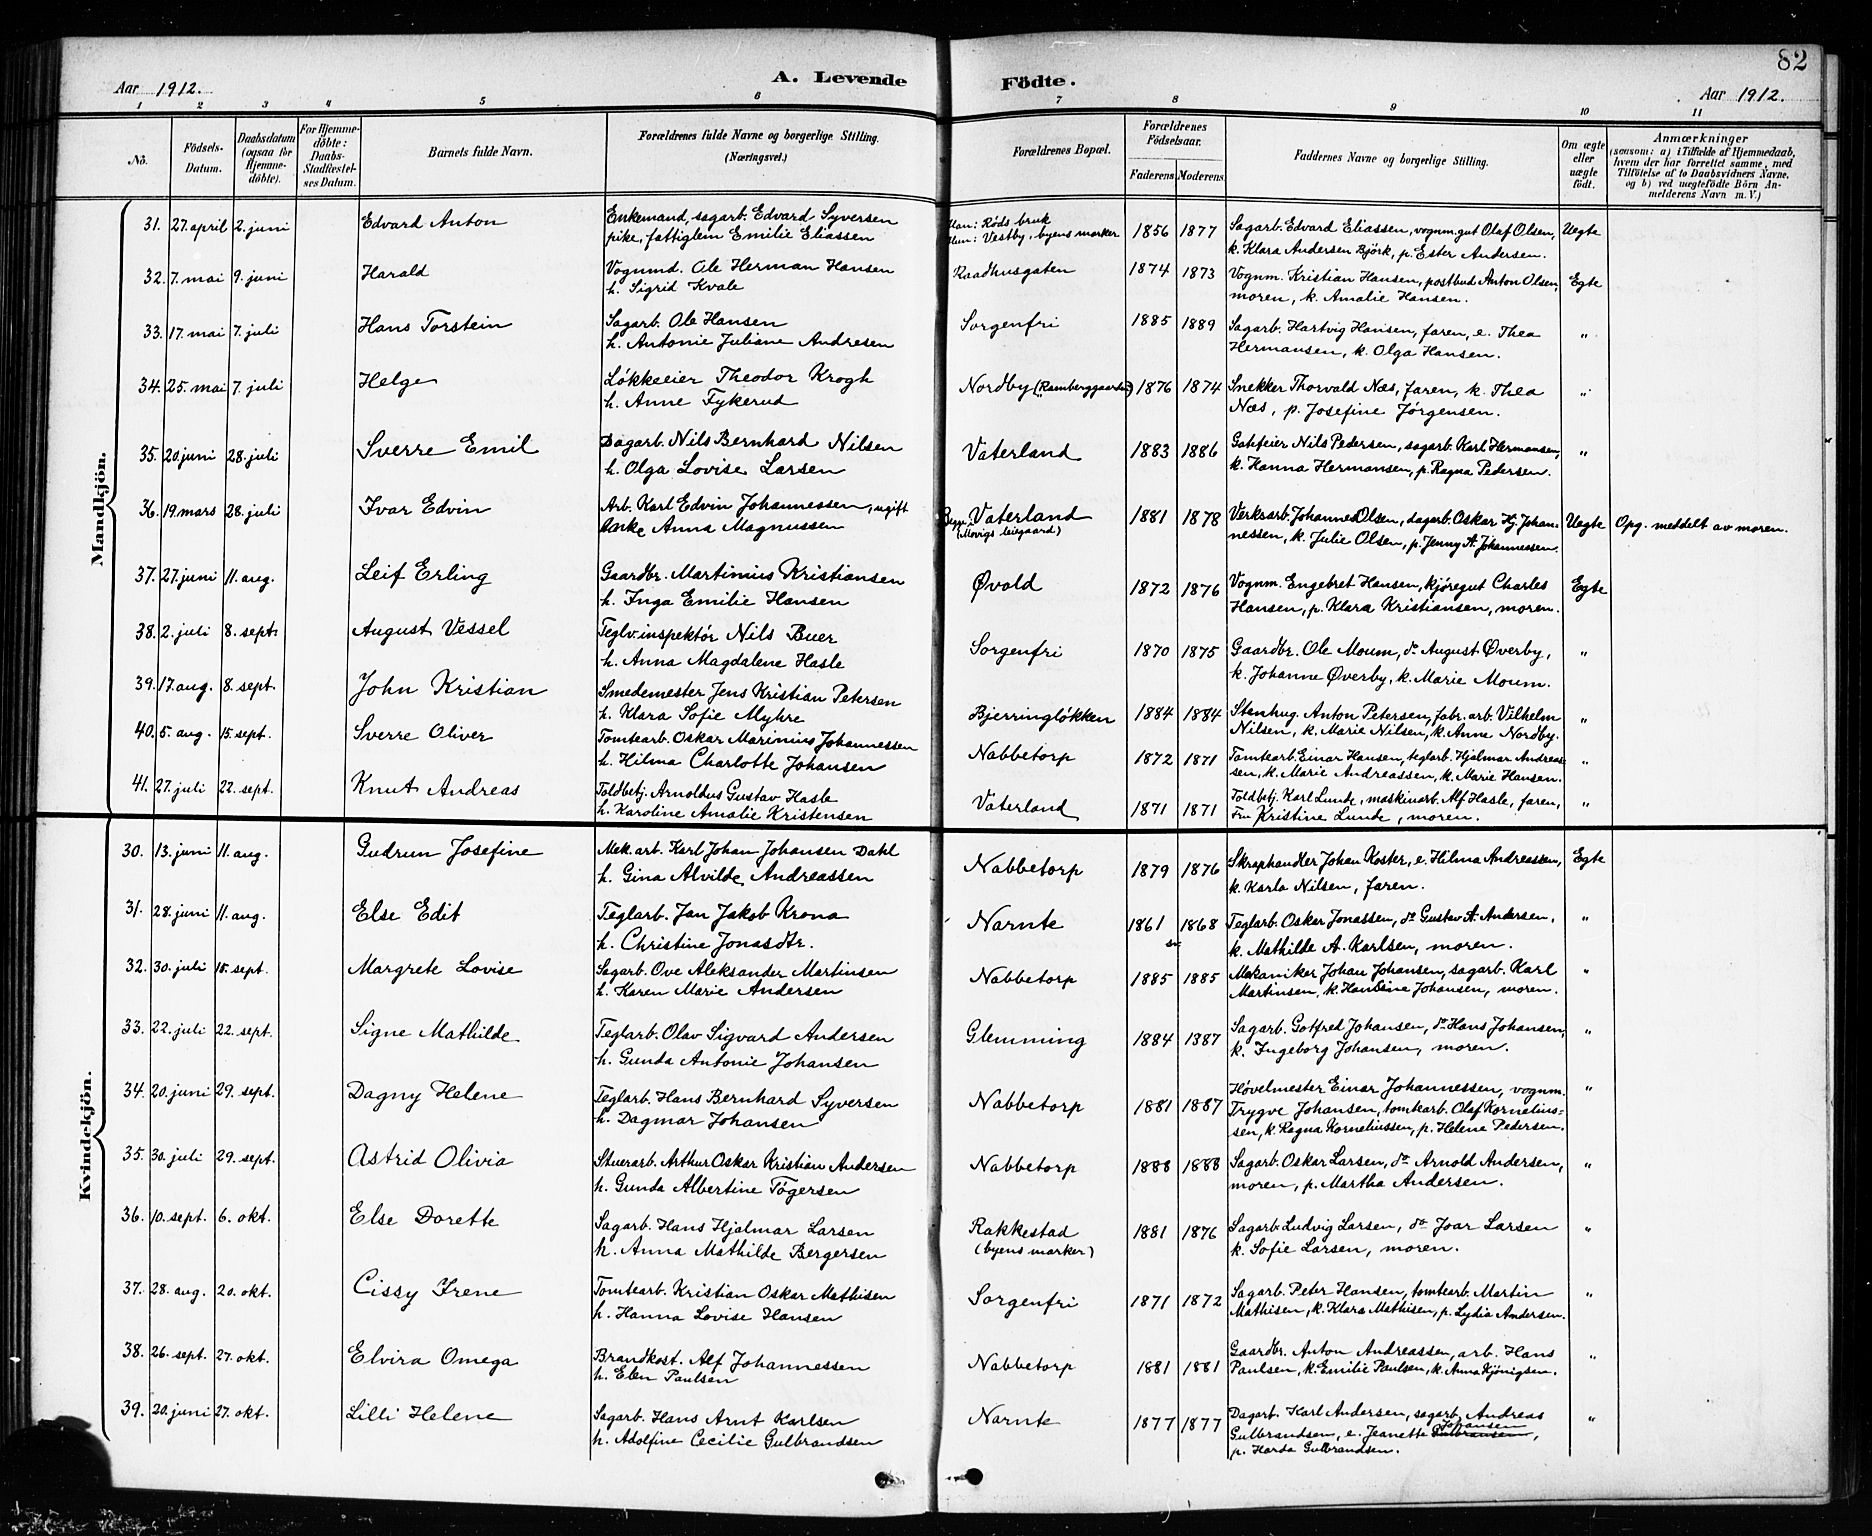 82
Aar 1912. A. Levende Födte. Aar 1912.
1 2 3 4 5 6 7 8 9 10 11
No. Födsels-Datum. Daabsdatum (ogsaa for Hjemme-döbte). For Hjemme-döbte: Daabs-Stadfæstel-ses Datum. Barnets fulde Navn. Forældrenes fulde Navne og borgerlige Stilling. (Næringsvei.) Forældrenes Bopæl. Forældrenes Födselsaar. Faderens Moderens Faddernes Navne og borgerlige Stilling. Om ægte eller uægte födt. Anmærkninger
(saasom: a) i Tilfælde af Hjemmedaab, hvem der har forrettet samme, med Tilföielse af to Daabsvidners Navne, og b) ved uægtefödte Börn An-melderens Navn m. V.)
Mandkjön.
31. 27. april 2. juni Edvard Anton Enkemand, sagarb. Edvard Syversen Han: Røds bruk 1856 1877 Sagarb. Edvard Eliassen, vognm.gut Olaf Olsen, Uegte
pike, fattiglem Emilie Eliassen Hun: Vestby, byens marker k. Klara Andersen Björk, p. Ester Andersen.
32. 7. mai 9. juni Harald Vognmd. Ole Herman Hansen Raadhusgaten 1874 1873 Vognm. Kristian Hansen, postbud Anton Olsen, Egte
h. Sigrid Kvale moren, k. Amalie Hansen.
33. 17. mai 7. juli Hans Torstein Sagarb. Ole Hansen Sorgenfri 1885 1889 Sagarb. Hartvig Hansen, faren, e. Thea "
h. Antonie Juliane Andresen Hermansen, k. Olga Hansen.
34. 25. mai 7. juli Helge Løkkeeier Theodor Krogh Nordby (Ramberggaarden) 1876 1874 Snekker Thorvald Næs, faren, k. Thea "
h. Anne Fykerud Næs, p. Josefine Jørgensen.
35. 20. juni 28. juli Sverre Emil Dagarb. Nils Bernhard Nilsen Vaterland 1883 1886 Gatefeier Nils Pedersen, sagarb. Karl Hermansen, "
h. Olga Lovise Larsen k. Hanna Hermansen, p. Ragna Pedersen.
36. 19. mars 28. juli Ivar Edvin Arb. Karl Edvin Johannessen, ugift Begge: Vaterland 1881 1878 Verksarb. Johannes Olsen, dagarb. Oskar Hj. Johan- Uegte Opg. meddelt av moren.
Enke Anna Magnussen (Movigs leiegaard) nessen, k. Julie Olsen, p. Jenny A. Johannessen.
37. 27. juni 11. aug. Leif Erling Gaardbr. Martinius Kristiansen Øvold 1872 1876 Vognm. Engebret Hansen, kjøregut Charles Egte
h. Inga Emilie Hansen Hansen, p. Klara Kristiansen, moren.
38. 2. juli 8. sept. August Vessel Teglv.inspektør Nils Buer Sorgenfri 1870 1875 Gaardbr. Ole Moum, do August Øverby, "
h. Anna Magdalene Hasle k. Johanne Øverby, k. Marie Moum.
39. 17. aug. 8. sept. John Kristian Smedemester Jens Kristian Petersen Bjerringløkken 1884 1884 Stenhug. Anton Petersen, fabr. arb. Vilhelm "
h. Klara Sofie Myhre Nilsen, k. Marie Nilsen, k. Anne Nordby.
40. 5. aug. 15. sept. Sverre Oliver Tomtearb. Oskar Marinius Johannessen Nabbetorp 1872 1871 Tomtearb. Einar Hansen, teglarb. Hjalmar Andreas- "
h. Hilma Charlotte Johansen sen, k. Marie Andreassen, k. Marie Hansen.
41. 27. juli 22. sept. Knut Andreas Toldbetj. Arnoldus Gustav Hasle Vaterland 1871 1871 Toldbetj. Karl Lunde, maskinarb. Alf Hasle, faren, "
h. Karoline Amalie Kristensen Fru Kristine Lunde, moren.
Kvindekjön.
30. 13. juni 11. aug. Gudrun Josefine Mek. arb. Karl Johan Johansen Dahl Nabbetorp 1879 1876 Skraphandler Johan Koster, e. Hilma Andreassen, Egte
h. Gina Alvilde Andreassen k. Karla Nilsen, faren.
31. 28. juni 11. aug. Else Edit Teglarb. Jan Jakob Krona Narnte 1861 1868 Teglarb. Oskar Jonassen, do Gustav A. Andersen, "
h. Christine Jonasdtr. k. Mathilde A. Karlsen, moren.
32. 30. juli 15. sept. Margrete Lovise Sagarb. Ove Aleksander Martinsen Nabbetorp 1885 1885 Mekaniker Johan Johansen, sagarb. Karl "
h. Karen Marie Andersen Martinsen, k. Hansine Johansen, moren.
33. 22. juli 22. sept. Signe Mathilde Teglarb. Olav Sigvard Andersen Glemming 1884 1887 Sagarb. Gotfred Johansen, do Hans Johansen, "
h. Gunda Antonie Johansen k. Ingeborg Johansen, moren.
34. 20. juni 29. sept. Dagny Helene Teglarb. Hans Bernhard Syversen Nabbetorp 1881 1887 Høvelmester Einar Johannessen, vognm. "
h. Dagmar Johansen Trygve Johansen, tomtearb. Olaf Kornelius-
sen, k. Ragna Korneliussen, p. Helene Pedersen.
35. 30. juli 29. sept. Astrid Olivia Stuerarb. Arthur Oskar Kristian Andersen Nabbetorp 1888 1888 Sagarb. Oskar Larsen, do Arnold Andersen, "
h. Gunda Albertine Tögersen moren, p. Martha Andersen.
36. 10. sept. 6. okt. Else Dorette Sagarb. Hans Hjalmar Larsen Rakkestad 1881 1876 Sagarb. Ludvig Larsen, do Joar Larsen "
h. Anna Mathilde Bergersen (byens marker) k. Sofie Larsen, moren.
37. 28. aug. 20. okt. Cissy Irene Tomtearb. Kristian Oskar Mathisen Sorgenfri 1871 1872 Sagarb. Peter Hansen, tomtearb. Martin "
h. Hanna Lovise Hansen Mathisen, k. Klara Mathisen, p. Lydia Andersen.
38. 26. sept. 27. okt. Elvira Omega Brandkost. Alf Johannessen Nabbetorp 1881 1881 Gaardbr. Anton Andreassen, arb. Hans "
h. Elen Paulsen Paulsen, k. Emilie Paulsen, k. Anna Kjönigsen.
39. 20. juni 27. okt. Lilli Helene Sagarb. Hans Arnt Karlsen Narnte 1877 1877 Dagarb. Karl Andersen, sagarb. Andreas "
h. Adolfine Cecilie Gulbrandsen Gulbrandsen, e. Jeanette Gulbransen Johansen,
p. Harda Gulbrandsen.